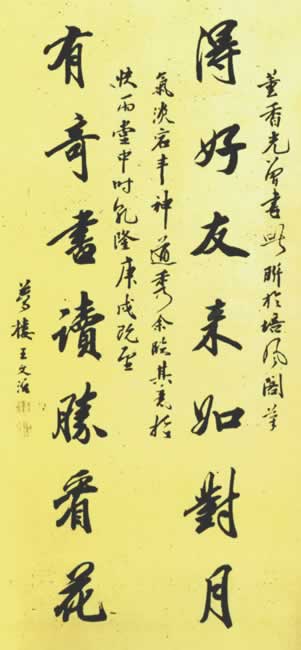 董香光曾書此聯於培風閣筆
得好友來如對月
氣淡宕丰神遒秀余臨其意於
快雨堂中时乾隆庚戌既望
有奇書讀勝看花
夢樓王文治